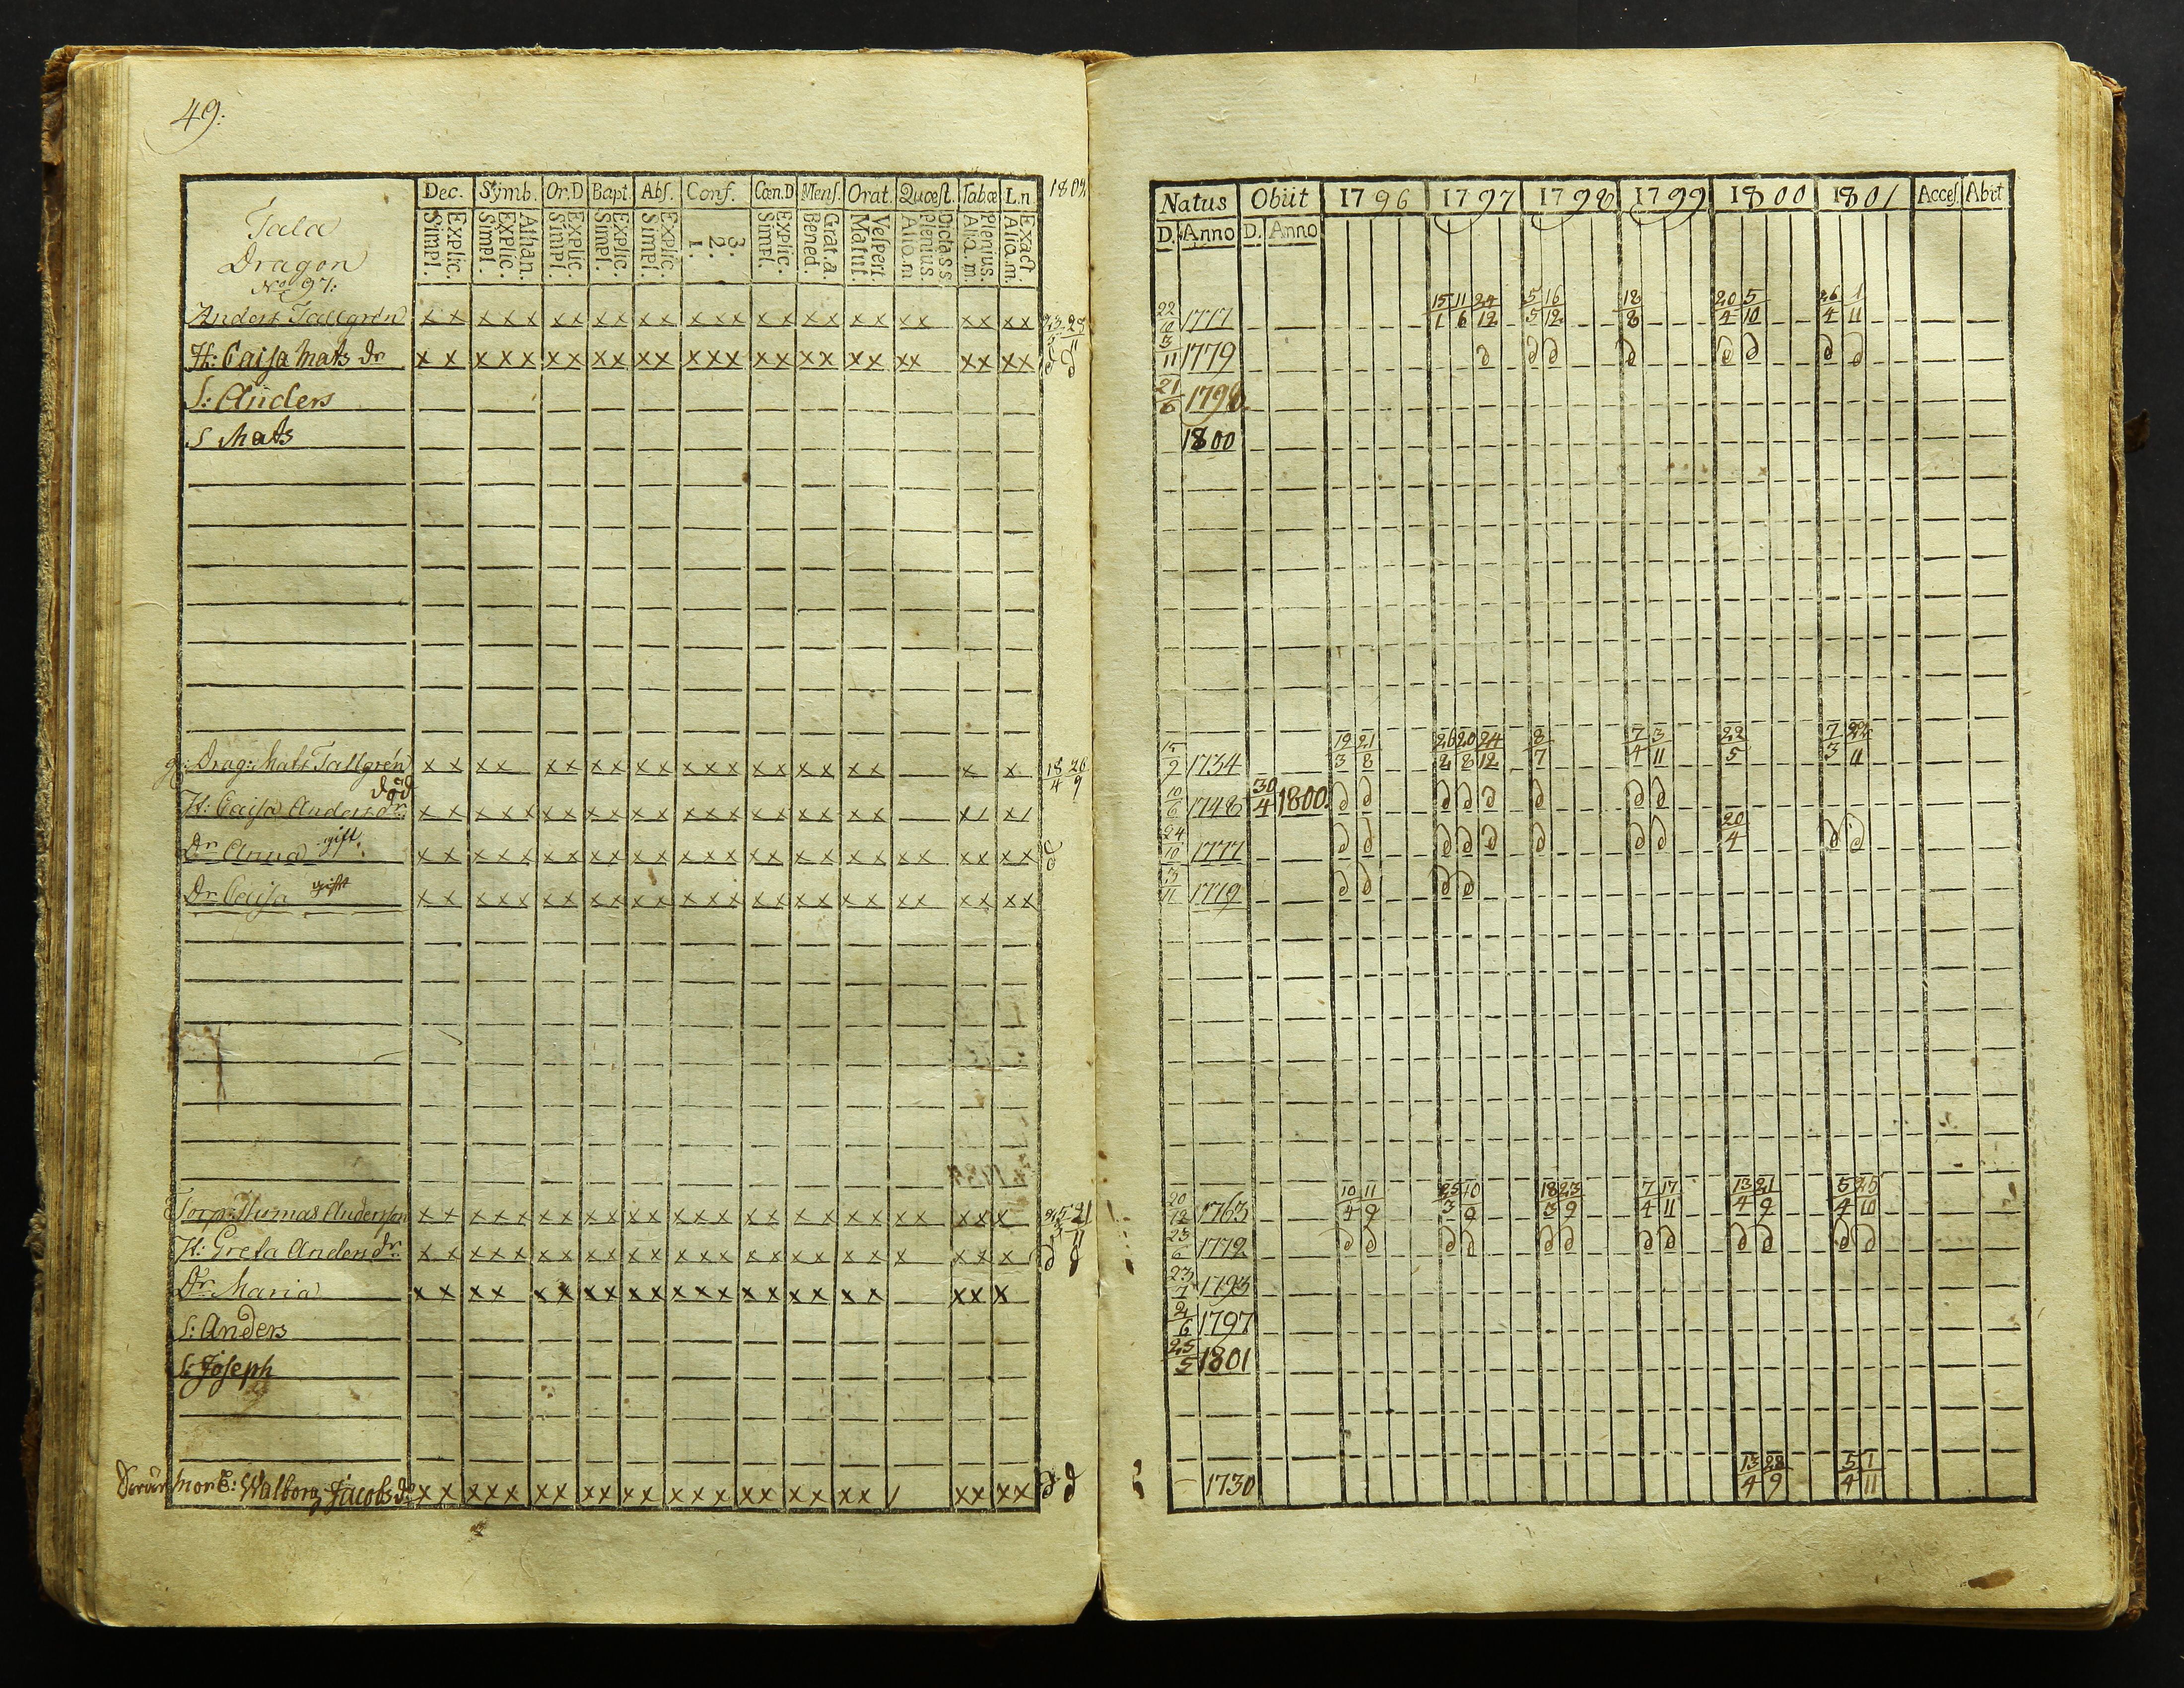 49:
Dec. Symb. Or.D Bapt. Abſ. Conf. Cœn.D Menſ. Orat. Quœſt. Tabœ L.n 1802
Explic. Simpl. Athan. Explic. Simpl. Explic. Simpl. Explic. Simpl. Explic. Simpl. 3. 2. 1. Explic. Simpl. Grat. a. Bened. Veſpert. Matut. Dicta s s. Plenius. Aliq. m. Plenius. Aliq. m. Exact. Aliq. m.
Tala
Dragon
No 97:
Anders Tallgrén x x x x x x x x x x x x x x x x x x x x x x x x x x x
H: Caisa Mats dr x x x x x x x x x x x x x x x x x x x x x x x x x x
S: Anders
S Mats
g: Drag: Mats Tallgrén x x x x x x x x x x x x x x x x x x x x x x 18/4 26/9
död
H: Caisa Anders dr
Dr Anna gift.
Dr Caisa gift
Torp: Thomas Andersson
H: Greta Anders dr
Dr Maria
S: Anders
S: Joseph
mor E: Walborg Jacobs dr
Natus Obiit 1796 1797 1798 1799 1800 1801 Acceſ. Abiit
D. Anno D. Anno
22/10 1777 15/1 11/6 24/12 5/5 16/12 18/8 20/4 5/10 26/4 1/11
5/11 1779 d d d d d d d d
21/6 1798
1800
15/9 1734 19/3 21/8 26/2 20/8 24/12 8/7 7/4 3/11 22/5 7/3 22/11
10/6 1748 30/4 1800. d d d d d d d d
24/10 1777 d d d d d d d d 20/4 d d
5/11 1779 d d d d
20/12 1763 10/4 11/9 25/3 10/9 18/3 23/9 7/4 17/11 13/4 21/9 5/4 25/10
23/6 1772 d d d d d d d d d d d d
23/7 1793
2/6 1797
25/5 1801
1730 13/4 28/9 5/4 1/11